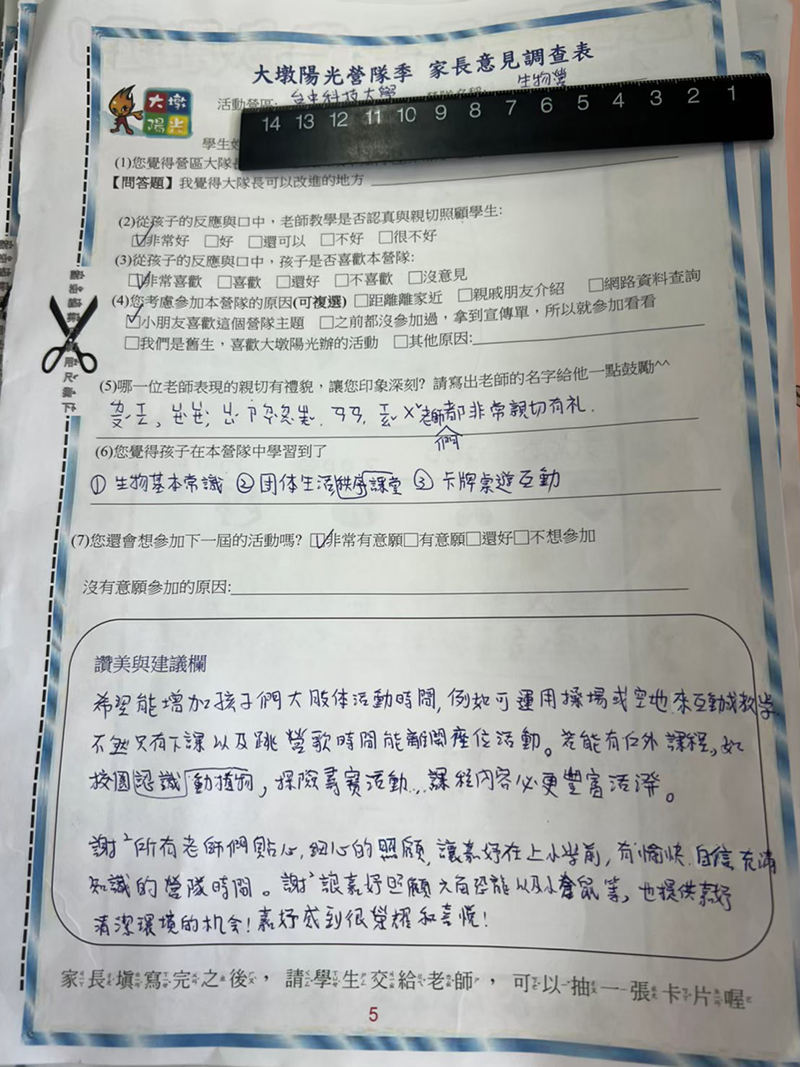 大墩陽光營隊季 家長意見調查表
大墩
陽光
活動營區: 台中科技大學 生物營
14 13 12 11 10 9 8 7 6 5 4 3 2 1
學生姓
(1)您覺得營區大隊長
【問答題】我覺得大隊長可以改進的地方
(2)從孩子的反應與口中，老師教學是否認真與親切照顧學生:
☑非常好 □好 □還可以 □不好 □很不好
(3)從孩子的反應與口中，孩子是否喜歡本營隊:
☑非常喜歡 □喜歡 □還好 □不喜歡 □沒意見
(4)您考慮參加本營隊的原因(可複選) □距離離家近 □親戚朋友介紹 □網路資料查詢
☑小朋友喜歡這個營隊主題 □之前都沒參加過，拿到宣傳單，所以就參加看看
□我們是舊生，喜歡大墩陽光辦的活動 □其他原因:
(5)哪一位老師表現的親切有禮貌，讓您印象深刻? 請寫出老師的名字給他一點鼓勵^^
老師們都非常親切有礼.
(6)您覺得孩子在本營隊中學習到了
① 生物基本常識 ② 団体生活秩序課堂 ③ 卡牌桌遊互動
(7)您還會想參加下一屆的活動嗎? ☑非常有意願□有意願□還好□不想參加
沒有意願參加的原因:
讚美與建議欄
希望能增加孩子們大肢体活動時間, 例如可運用操場或空地來互動或教學
不然只有下課以及跳營歌時間能離開座位活動。若能有户外課程, 如
校園認識動植物, 探險尋寶活動... 課程內容必更豐富活潑。
謝²所有老師們貼心, 細心的照顧, 讓嘉妤在上小學前, 有愉快 自信 充滿
知識的營隊時間。謝²讓嘉妤照顧六角恐龍以及小倉鼠等, 也提供嘉妤
清潔環境的机会! 嘉妤感到很榮耀和喜悅!
家長填寫完之後，請學生交給老師，可以抽一張卡片喔
5